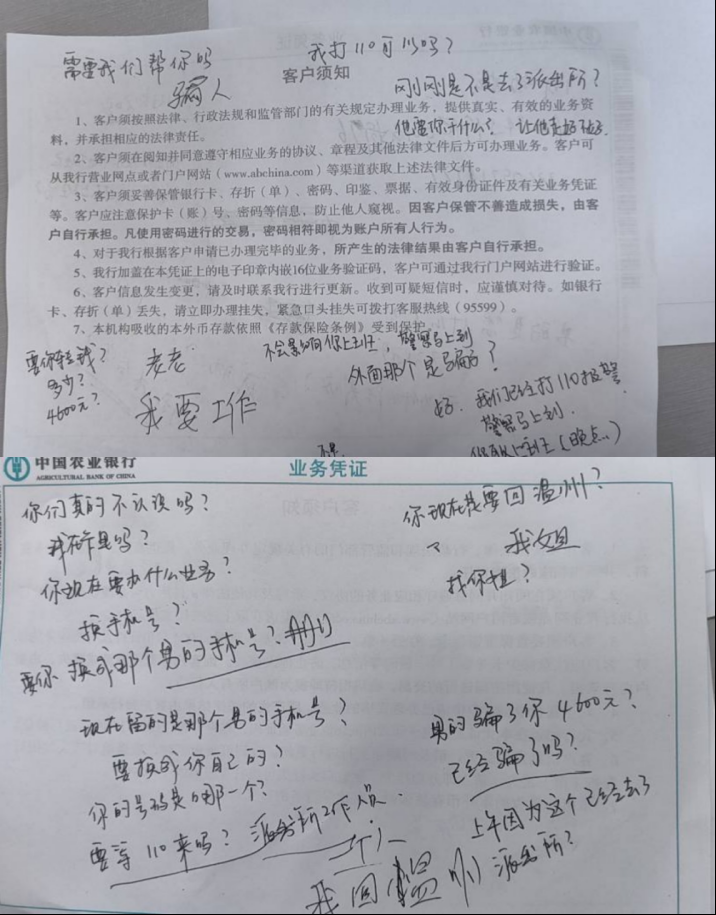 需要我们帮你吗
我打110可以吗?
骗人
客户须知
刚刚是不是去了派出所?
他要你干什么?
1、客户须按照法律、行政法规和监管部门的有关规定办理业务,提供真实、有效的业务资
料,并承担相应的法律责任。
2、客户须在阅知并同意遵守相应业务的协议、章程及其他法律文件后方可办理业务。客户可
从我行营业网点或者门户网站(www.abchina.com)等渠道获取上述法律文件。
3、客户须妥善保管银行卡、存折(单)、密码、印鉴、票据、有效身份证件及有关业务凭证
等。客户应注意保护卡(账)号、密码等信息,防止他人窥视。因客户保管不善造成损失,由客
户自行承担。凡使用密码进行的交易,密码相符即视为账户所有人行为。
4、对于我行根据客户申请已办理完毕的业务,所产生的法律结果由客户自行承担。
5、我行加盖在本凭证上的电子印章内嵌16位业务验证码,客户可通过我行门户网站进行验证。
6、客户信息发生变更,请及时联系我行进行更新。收到可疑短信时,应谨慎对待。如银行
卡、存折(单)丢失,请立即办理挂失,紧急口头挂失可拨打客服热线(95599)。
7、本机构吸收的本外币存款依照《存款保险条例》受到保护。
要你转钱?
多少?
4600元?
老老
我要工作
不会影响你上班,警察马上到
外面那个是骗的?
好.我们已经打110报警
警察马上到.
中国农业银行
AGRICULTURAL BANK OF CHINA
业务凭证
你们真的不认识吗?
你现在要办什么业务?
换手机号?
要你换成那个男的手机号?
现在留的是那个男的手机号?
要换成你自己的?
你的号码是哪一个?
要等110来吗?派出所工作人员.
你现在是要回温州?
我姐
找你姐?
男的骗了你4600元?
已经骗了吗?
上午因为这个已经去了
派出所?
我回温州